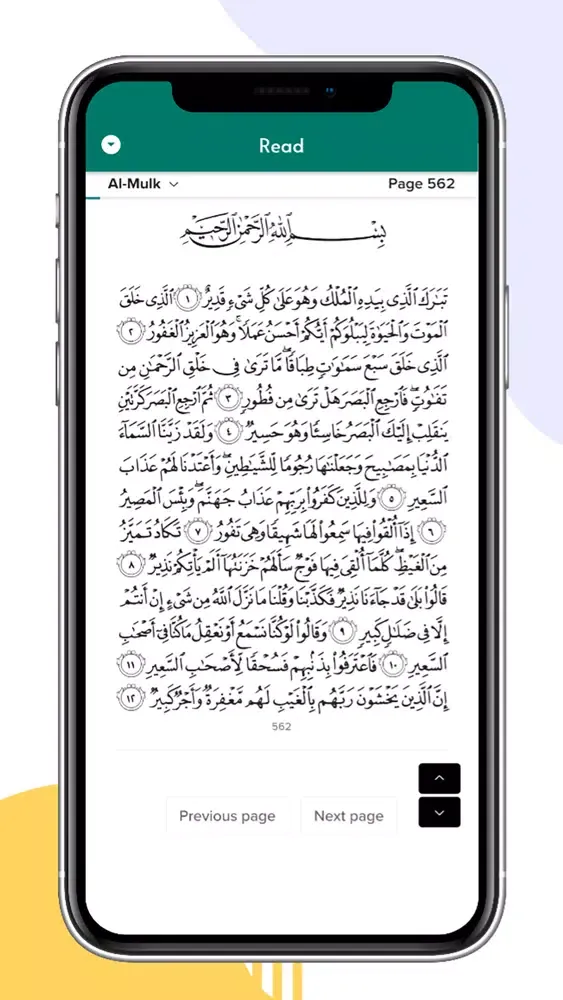 Read
Al-Mulk
Page 562
بِسْمِ ٱللَّهِ ٱلرَّحْمَٰنِ ٱلرَّحِيمِ
تَبَٰرَكَ ٱلَّذِى بِيَدِهِ ٱلْمُلْكُ وَهُوَ عَلَىٰ كُلِّ شَىْءٍ قَدِيرٌ ١ ٱلَّذِى خَلَقَ
ٱلْمَوْتَ وَٱلْحَيَوٰةَ لِيَبْلُوَكُمْ أَيُّكُمْ أَحْسَنُ عَمَلًا ۚ وَهُوَ ٱلْعَزِيزُ ٱلْغَفُورُ ٢
ٱلَّذِى خَلَقَ سَبْعَ سَمَٰوَٰتٍ طِبَاقًا ۖ مَّا تَرَىٰ فِى خَلْقِ ٱلرَّحْمَٰنِ مِن
تَفَٰوُتٍ ۖ فَٱرْجِعِ ٱلْبَصَرَ هَلْ تَرَىٰ مِن فُطُورٍ ٣ ثُمَّ ٱرْجِعِ ٱلْبَصَرَ كَرَّتَيْنِ
يَنقَلِبْ إِلَيْكَ ٱلْبَصَرُ خَاسِئًا وَهُوَ حَسِيرٌ ٤ وَلَقَدْ زَيَّنَّا ٱلسَّمَآءَ
ٱلدُّنْيَا بِمَصَٰبِيحَ وَجَعَلْنَٰهَا رُجُومًا لِّلشَّيَٰطِينِ ۖ وَأَعْتَدْنَا لَهُمْ عَذَابَ
ٱلسَّعِيرِ ٥ وَلِلَّذِينَ كَفَرُوا۟ بِرَبِّهِمْ عَذَابُ جَهَنَّمَ ۖ وَبِئْسَ ٱلْمَصِيرُ
٦ إِذَآ أُلْقُوا۟ فِيهَا سَمِعُوا۟ لَهَا شَهِيقًا وَهِىَ تَفُورُ ٧ تَكَادُ تَمَيَّزُ
مِنَ ٱلْغَيْظِ ۖ كُلَّمَآ أُلْقِىَ فِيهَا فَوْجٌ سَأَلَهُمْ خَزَنَتُهَآ أَلَمْ يَأْتِكُمْ نَذِيرٌ ٨
قَالُوا۟ بَلَىٰ قَدْ جَآءَنَا نَذِيرٌ فَكَذَّبْنَا وَقُلْنَا مَا نَزَّلَ ٱللَّهُ مِن شَىْءٍ إِنْ أَنتُمْ
إِلَّا فِى ضَلَٰلٍ كَبِيرٍ ٩ وَقَالُوا۟ لَوْ كُنَّا نَسْمَعُ أَوْ نَعْقِلُ مَا كُنَّا فِىٓ أَصْحَٰبِ
ٱلسَّعِيرِ ١٠ فَٱعْتَرَفُوا۟ بِذَنۢبِهِمْ فَسُحْقًا لِّأَصْحَٰبِ ٱلسَّعِيرِ ١١
إِنَّ ٱلَّذِينَ يَخْشَوْنَ رَبَّهُم بِٱلْغَيْبِ لَهُم مَّغْفِرَةٌ وَأَجْرٌ كَبِيرٌ ١٢
562
Previous page
Next page